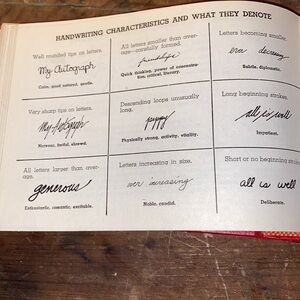 HANDWRITING CHARACTERISTICS AND WHAT THEY DENOTE
Well rounded tips on letters.
My Autograph
Calm, good natured, gentle.
All letters smaller than aver-
age—carefully formed.
friendships
Quick thinking, power of concentra-
tion, critical, literary.
Letters becoming smaller.
ever decreasing
Subtle, diplomatic.
Very sharp tips on letters.
My Autograph
Nervous, fretful, shrewd.
Descending loops unusually
long.
Physically strong, activity, vitality.
Long beginning strokes.
all is well
Impatient.
All letters larger than aver-
age.
generous
Enthusiastic, romantic, excitable.
Letters increasing in size.
ever increasing
Noble, candid.
Short or no beginning strokes
all is well
Deliberate.